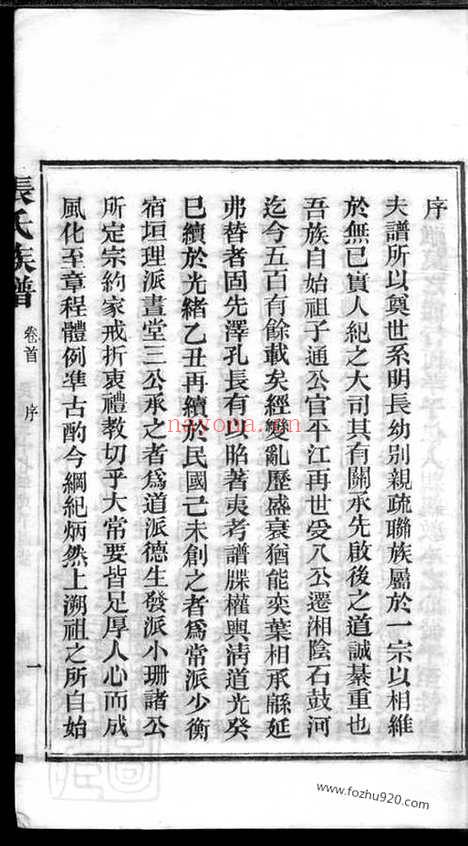 序
夫譜所以奠世系明長幼別親疏聯族屬於一宗以相維
於無已實人紀之大司其有關承先啟後之道誠綦重也
吾族自始祖子通公官平江再世受八公遷湘陰石鼓河
迄今五百有餘載矣經變亂歷盛衰猶能奕葉相承緜延
弗替者固先澤孔長有以貽著夷考譜牒權輿淸道光癸
巳續於光緒乙丑再續於民國己未創之者爲常派少衡
宿垣理派晝堂三公承之者爲道派德生發派小珊諸公
所定宗約家戒折衷禮教切乎大常要皆足厚人心而成
風化至章程體例準古酌今綱紀炳然上溯祖之所自始
張氏族譜
卷首
序
一
nayona.cn
www.fozhu920.com